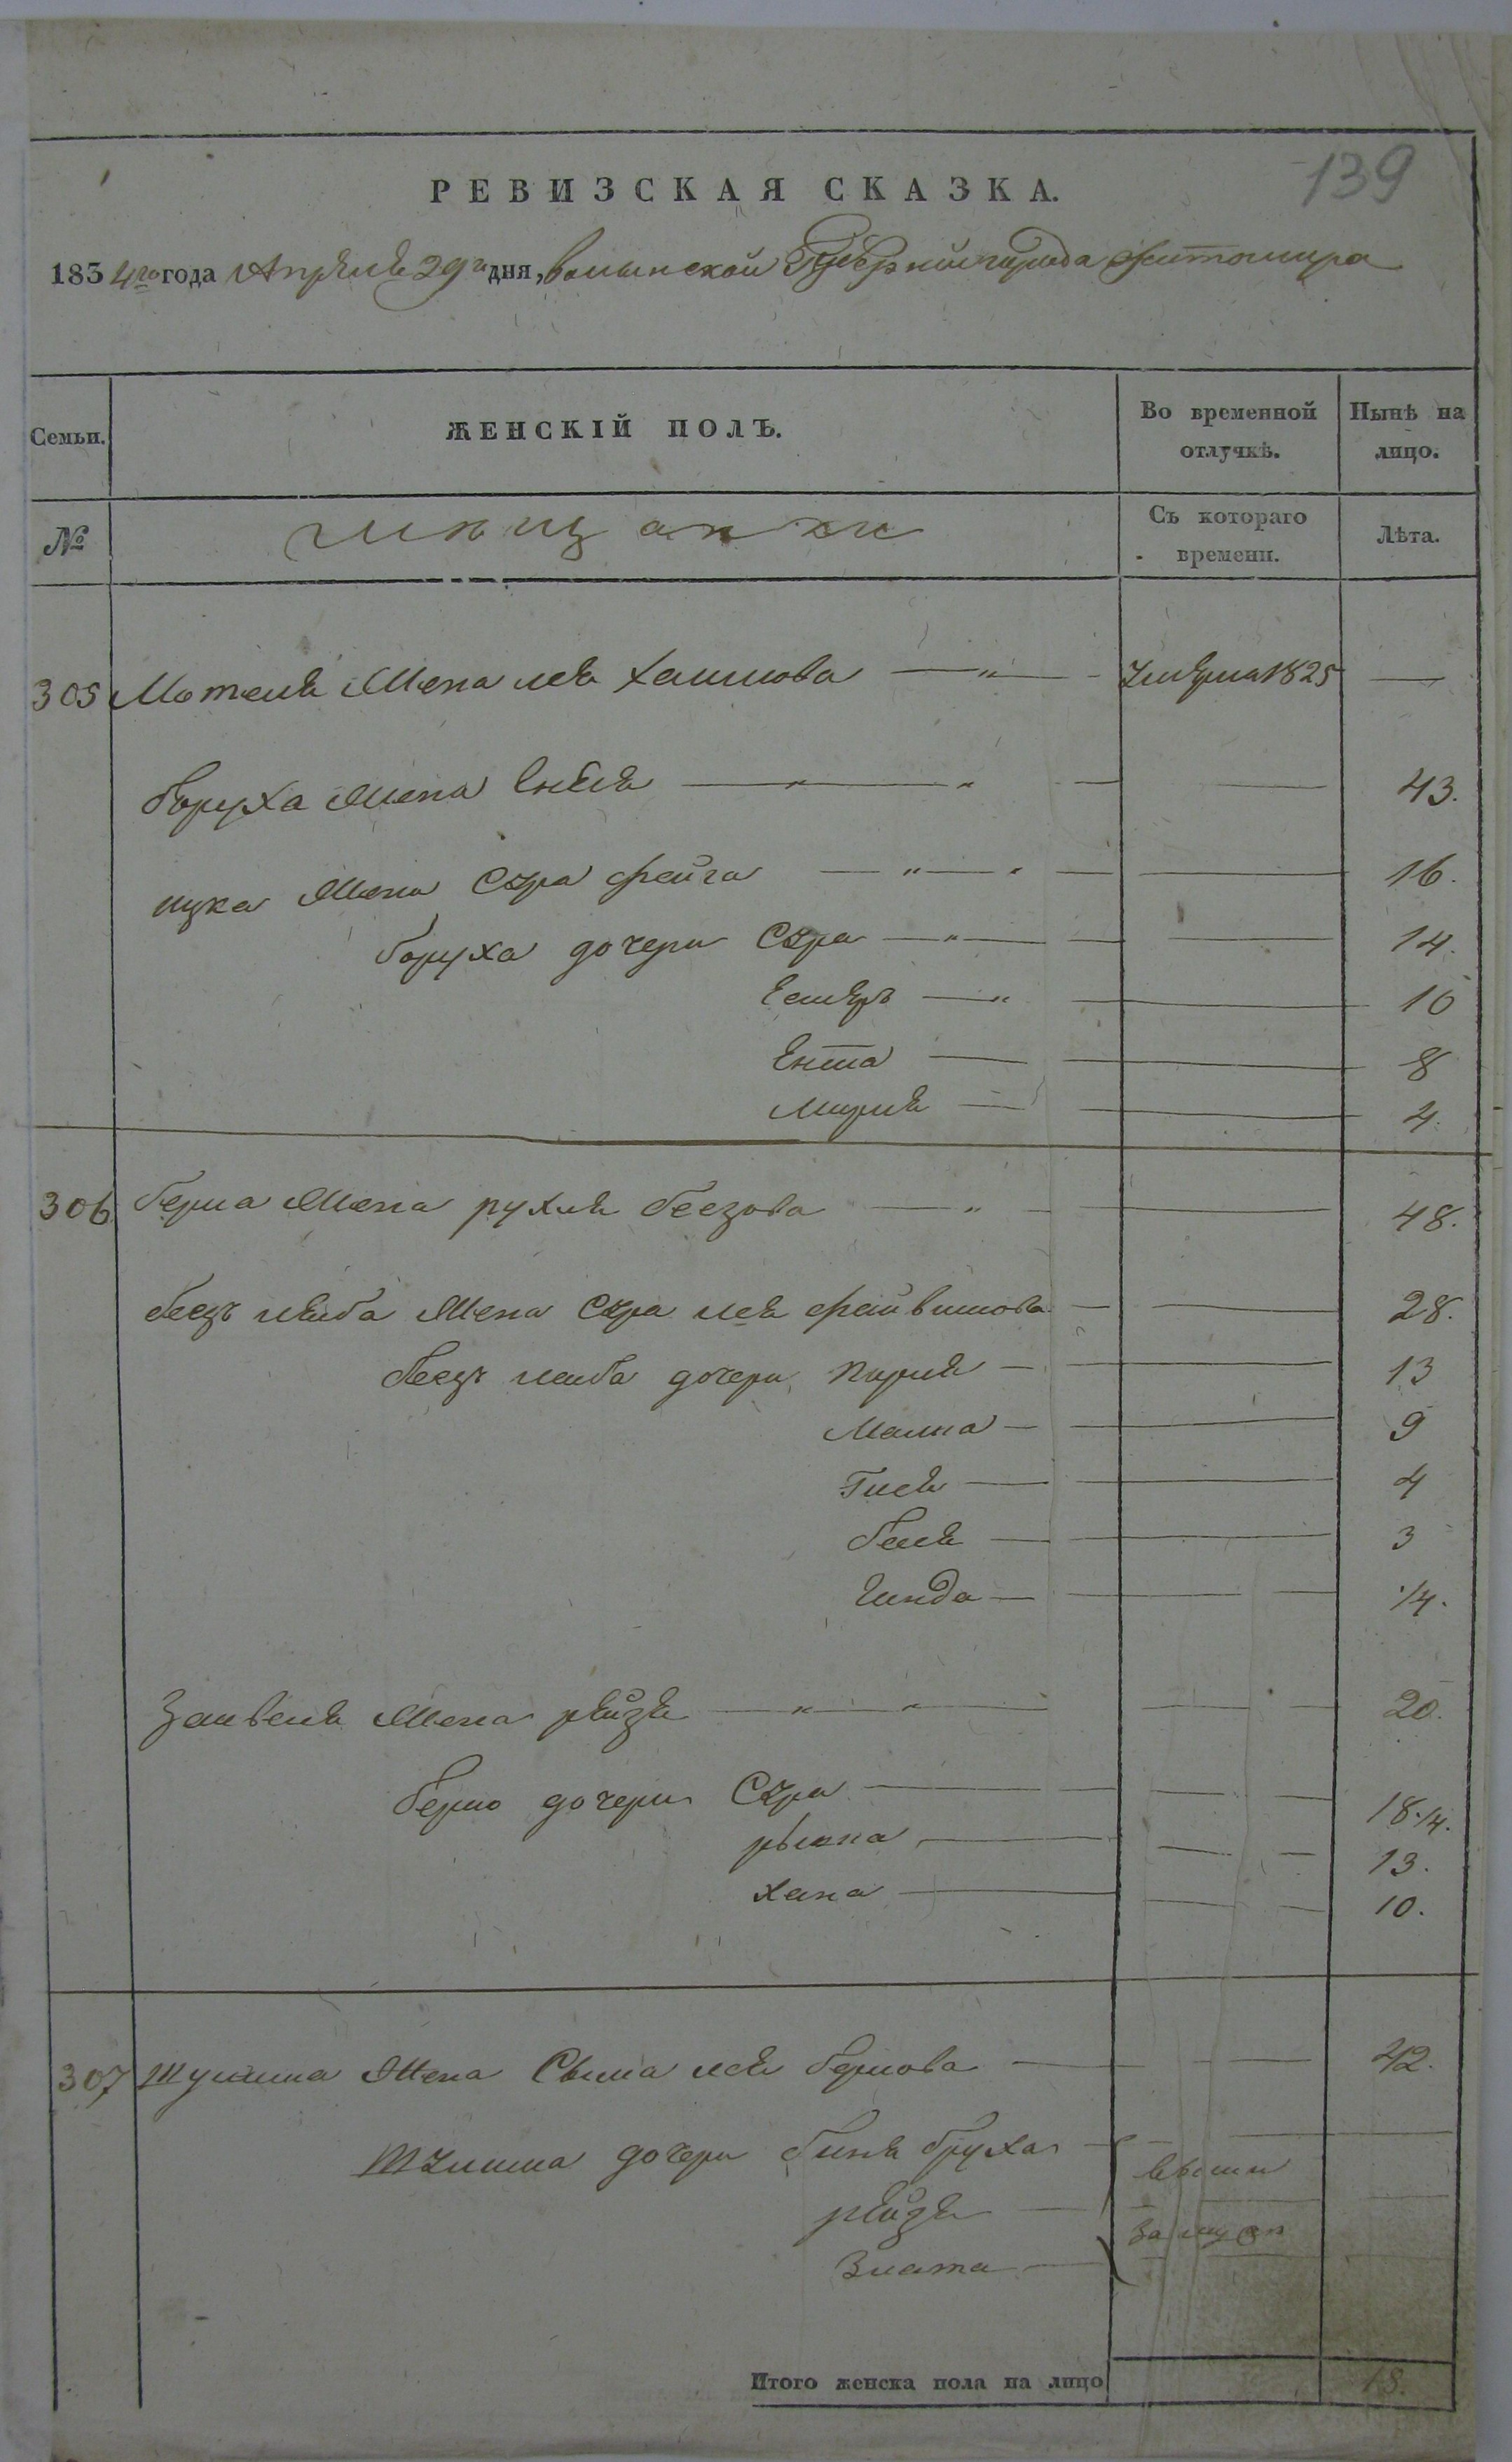 139
РЕВИЗСКАЯ СКАЗКА.
1834го года Апреля 29го дня, волынской Губернии города Житомира
Семьи. ЖЕНСКІЙ ПОЛЪ. Во временной отлучкѣ. Нынѣ на лицо.
№ мещанки Съ котораго времени. Лѣта.
305 Мотеля Жена лея Хаимова — умерла 1825 —
боруха Жена Енеля — 43.
ицка Жена Сура фейга — 16.
боруха дочери Сура — 14.
Естеръ — 10
Ента — 8
Мирля — 4.
306 берка Жена рухля беезова — 48.
Жена Сура лея файвишова — 28.
дочери Перля — 13
Малка — 9
Гися — 4
беля — 3
Гинда — 1/4.
Зайвеля Жена рейзя — 20.
берко дочери Сура — 18 1/4.
рыкла — 13.
хана — 10.
307 Жена Сыма лея беркова — 42.
дочери биня бруха
рейзя
Злата
вышли
замуж
Итого женска пола на лицо 18.